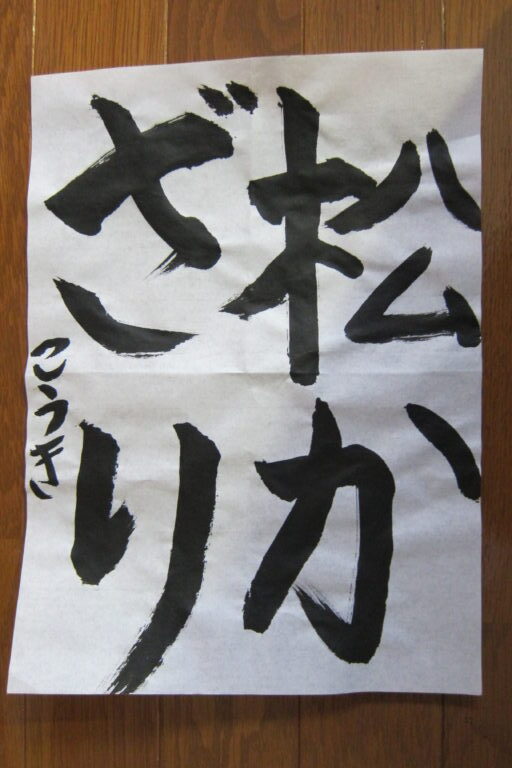 松か
ざり
こうき